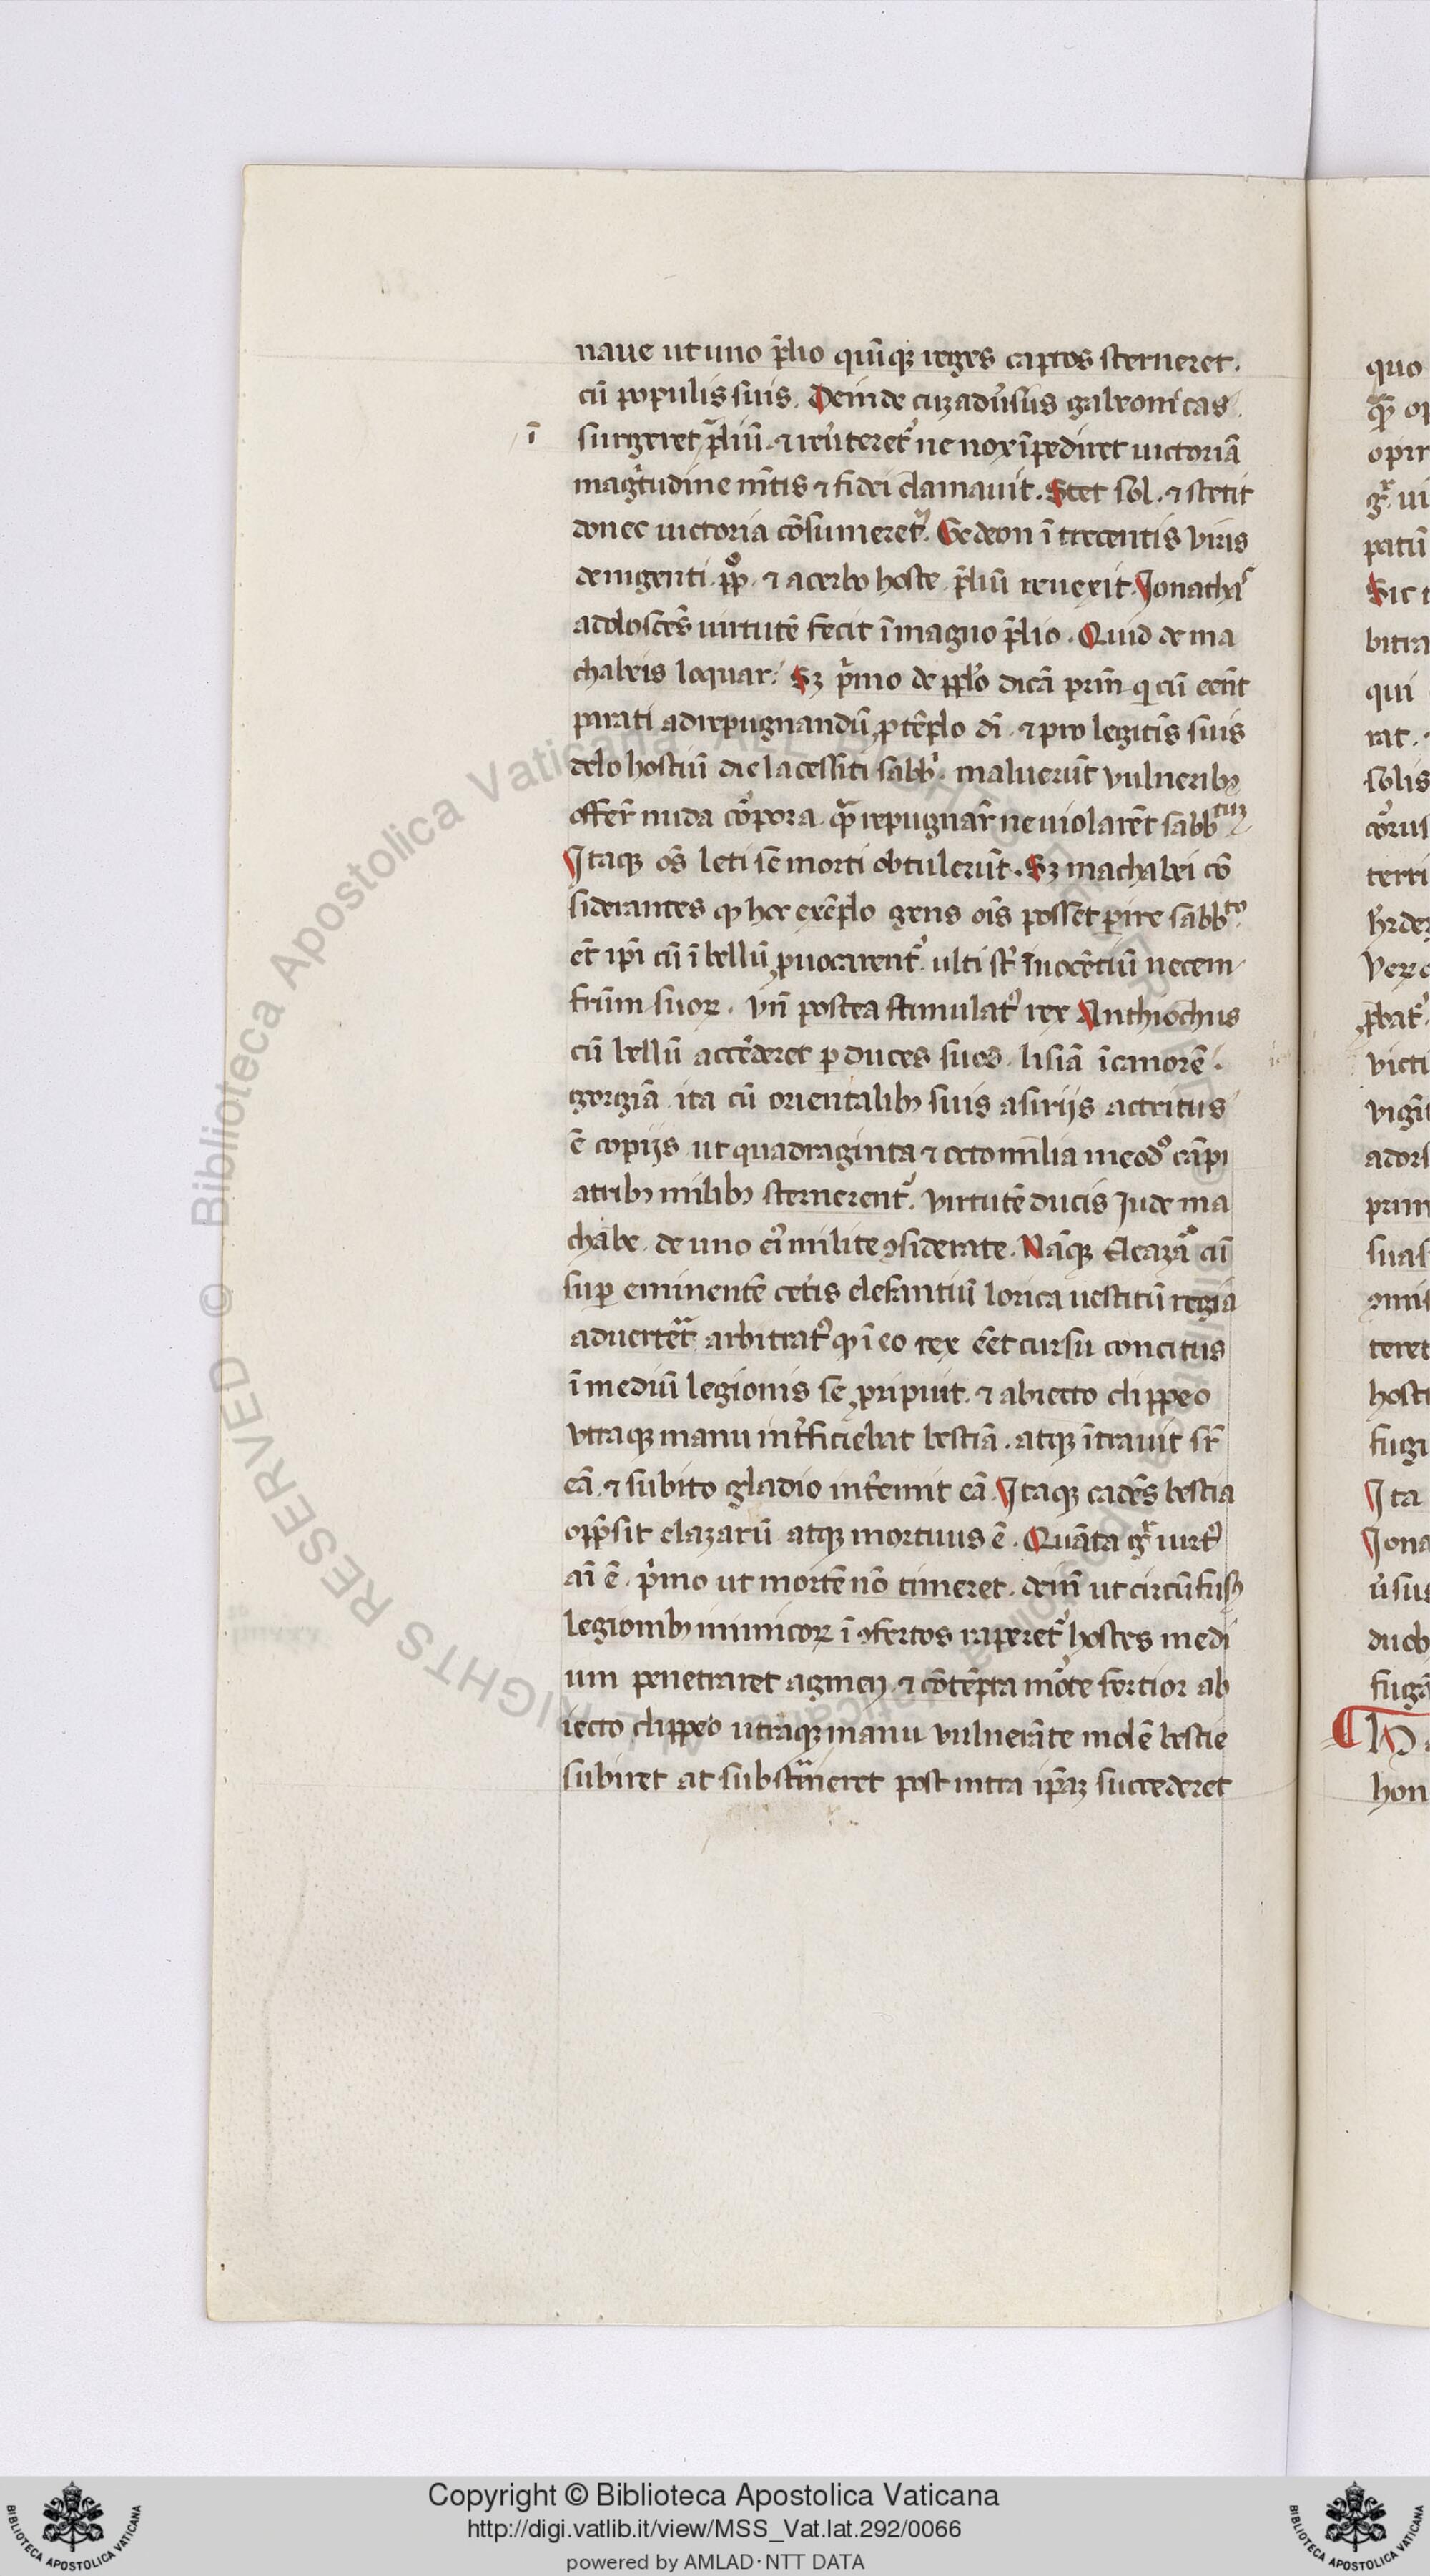 naue ut uno p̄lio quīqꝫ reges captos sterneret.
cū populis suis. Deinde cuꝫ adūsus gabeonitas
ī surgeret p̄liū ⁊ reu̾teret᷑ ne nox īpediret uictoriā
magͥtudine mētis ⁊ fidei clamauit. Stet sol. ⁊ stetit
donec uictoria cōsumeret᷑. Gedeon ī trecentis viris
de nigenti pp̊ ⁊ acerbo hoste p̄liū reuexit. Jonathaˢ
adolosces̄ uirtutē fecit ī magno p̄lio. Quid de ma
chabeis loquar. Sꝫ pͥmo de pplo dicā prim̄ q cū eēnt
parati ad repugnandū ꝓ tēplo dī ⁊ pro legitīs suis
dolo hostiū die lacessiti sabbͥ. maluerūt vulneribꝫ
offer̄ nuda cōpora qᷓ repugnar̄ ne uiolarēt sabbᵗᵘᵐ
Itaqꝫ oēs leti sē morti obtulerūt. Sꝫ machabei cō
siderantes ꝙ hoc exēplo gens oīs possēt ꝑire sabbᵗᵒ.
et̄ ipī cū ī bellū ꝓuocarent᷑ ulti st̄ īnocētiū necem
frūm suoꝝ. vn̄ postea stimulat᷑ rex Anthiochus
cū bellū accēderet ꝑ duces suos. lisiā icanorē.
gorgiā ita cū orientalibꝫ suis asirijs actritus
ē copijs ut quadraginta ⁊ octo milia in eodᵒ cāpi
a tribꝫ milibꝫ sternerent᷑. virtutē ducis Jude ma
chabe. de uno ei᷒ milite ꝯsiderate. Nāqꝫ Eleazaͬ cū
suꝑ eminentē cet̄is elefantiū lorica uestitū regia
aduertet arbitrat᷑ ꝙ ī eo rex eēt cursu concitus
ī mediū legionis se ꝓripuit. ⁊ abiecto clippeo
vtraqꝫ manu int̄ficiebat bestiā. atqꝫ ītrauit st̄
eā. ⁊ subito gladio int̄emit eā. Itaqꝫ cadēs bestia
opp̄sit elazarū atqꝫ mortuus ē. Quāta gͥ uirt᷒
aī ē. pͥmo ut mortē nō timeret. dein̄ ut circūfusꝫ
legionibꝫ inimicoꝝ ī ꝯfertos raperet᷑ hostes medi
um penetraret agmen ⁊ cōtēpta mōte fortior ab
iecto clippeo utraqꝫ manu vulnerāte molē bestie
subiret at substineret post intra ip̄aꝫ succederet
Copyright © Biblioteca Apostolica Vaticana
http://digi.vatlib.it/view/MSS_Vat.lat.292/0066
powered by AMLAD·NTT DATA